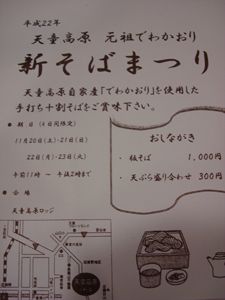 平成22年
天童高原 元祖でわかおり
新そばまつり
天童高原自家産「でわかおり」を使用した
手打ち十割そばをご賞味下さい。
● 期 日 (4日間限定)
11月20日(土)・21日(日)
22日(月)・23日(火)
午前11時 〜 午後2時まで
● 会 場
天童高原ロッジ
おしながき
・ 板そば 1,000円
・ 天ぷら盛り合わせ 300円
天童高原